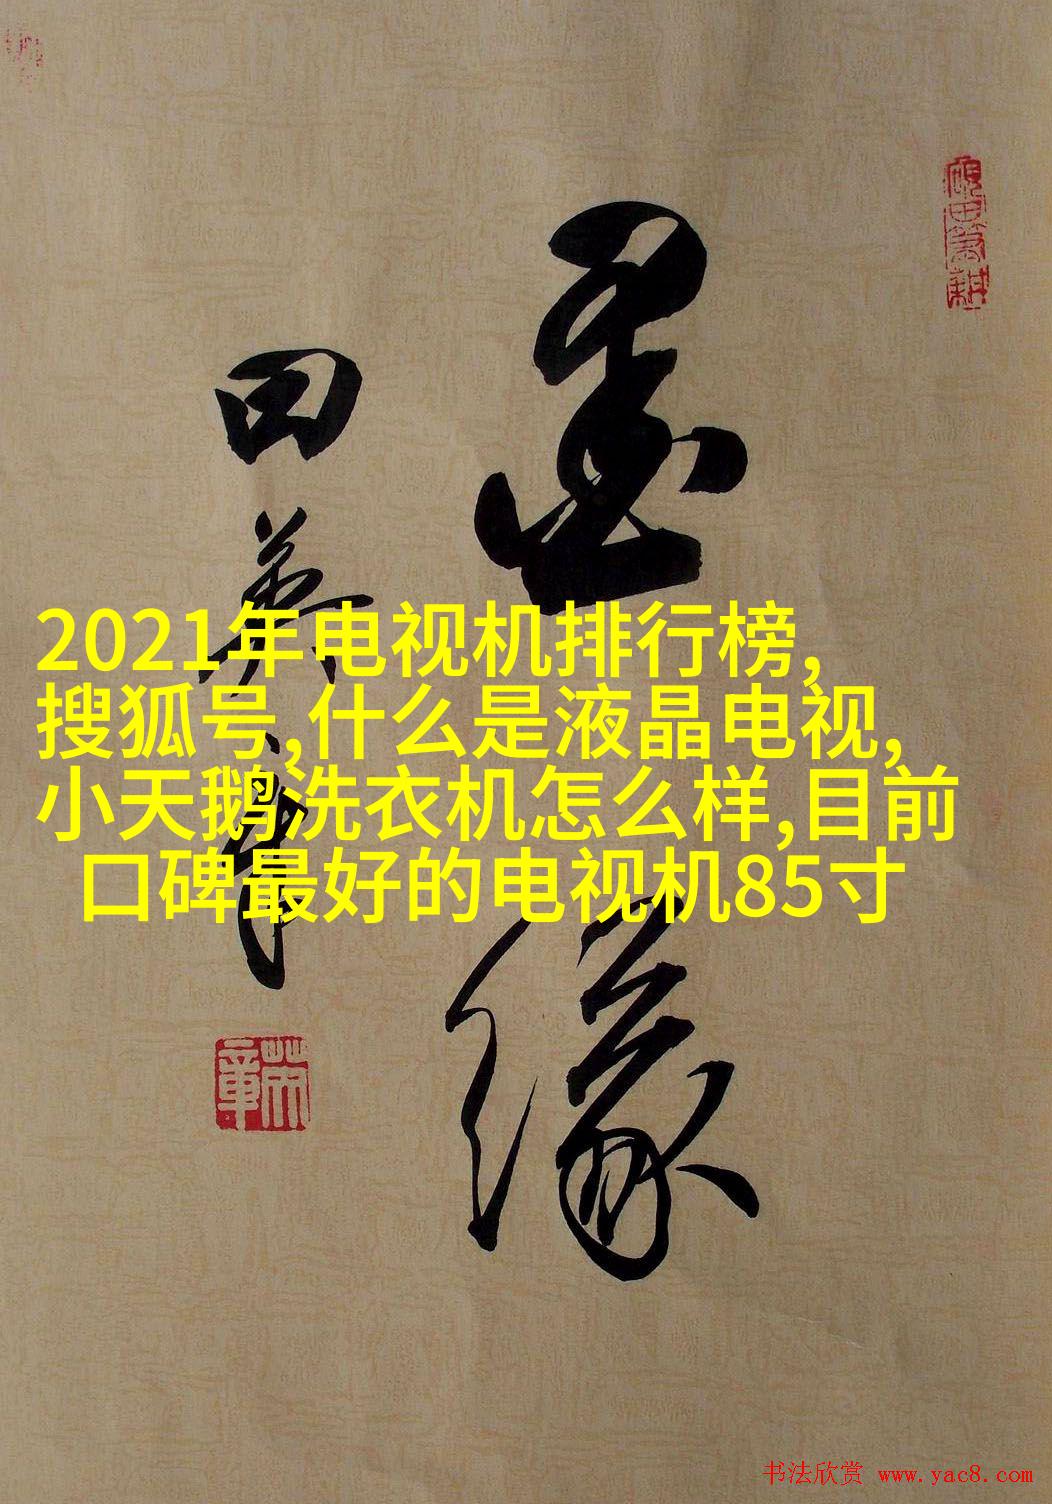 2021年电视机排行榜,
搜狐号,什么是液晶电视,
小天鹅洗衣机怎么样,目前
口碑最好的电视机85寸
墨缘
田英章
书法欣赏 www.yac8.com